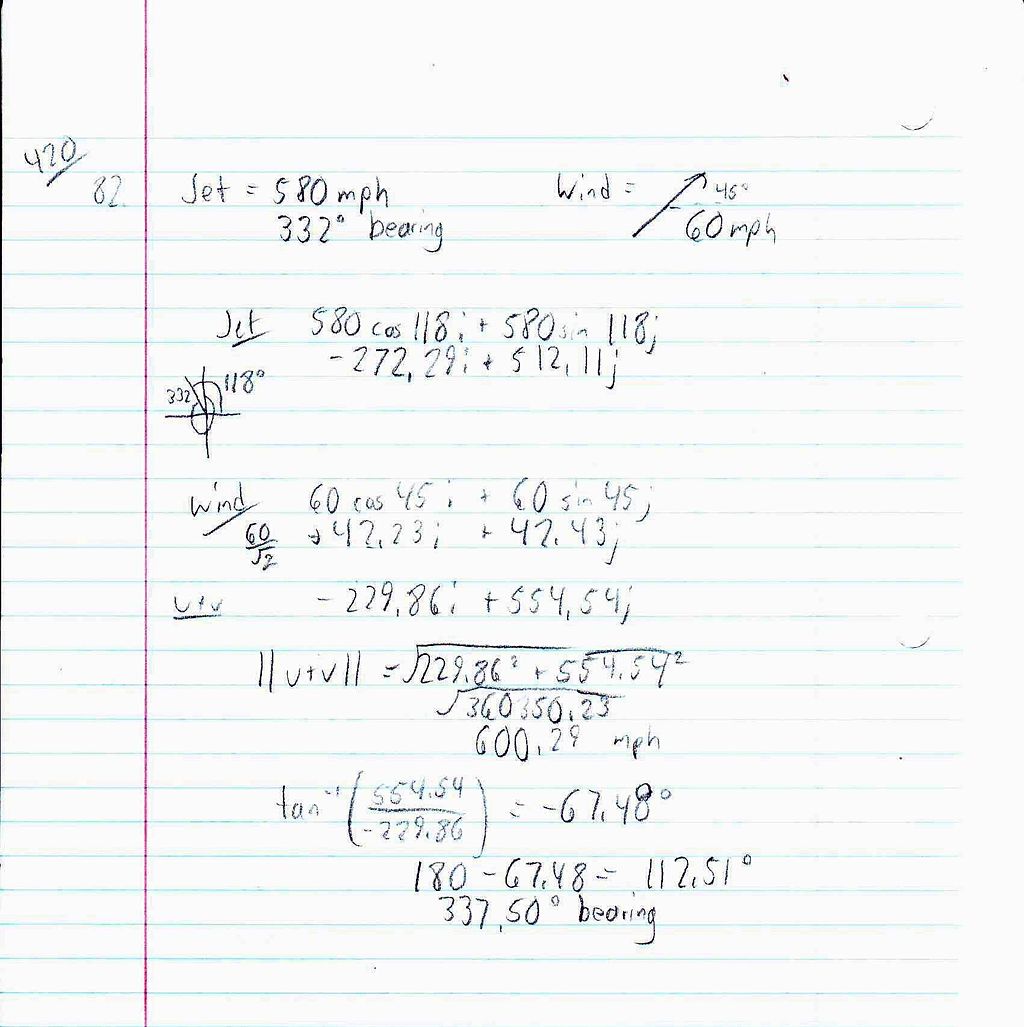 420
82. Jet = 580 mph Wind = 45°
332° bearing 60 mph
Jet 580 cos 118 i + 580 sin 118 j
-272.29 i + 512.11 j
332 118°
Wind 60 cos 45 i + 60 sin 45 j
60/√2 +42.23 i + 42.43 j
u+v -229.86 i + 554.54 j
||u+v|| = √229.86² + 554.54²
√360350.23
600.29 mph
tan⁻¹ (554.54/-229.86) = -67.48°
180 - 67.48 = 112.51°
337.50° bearing